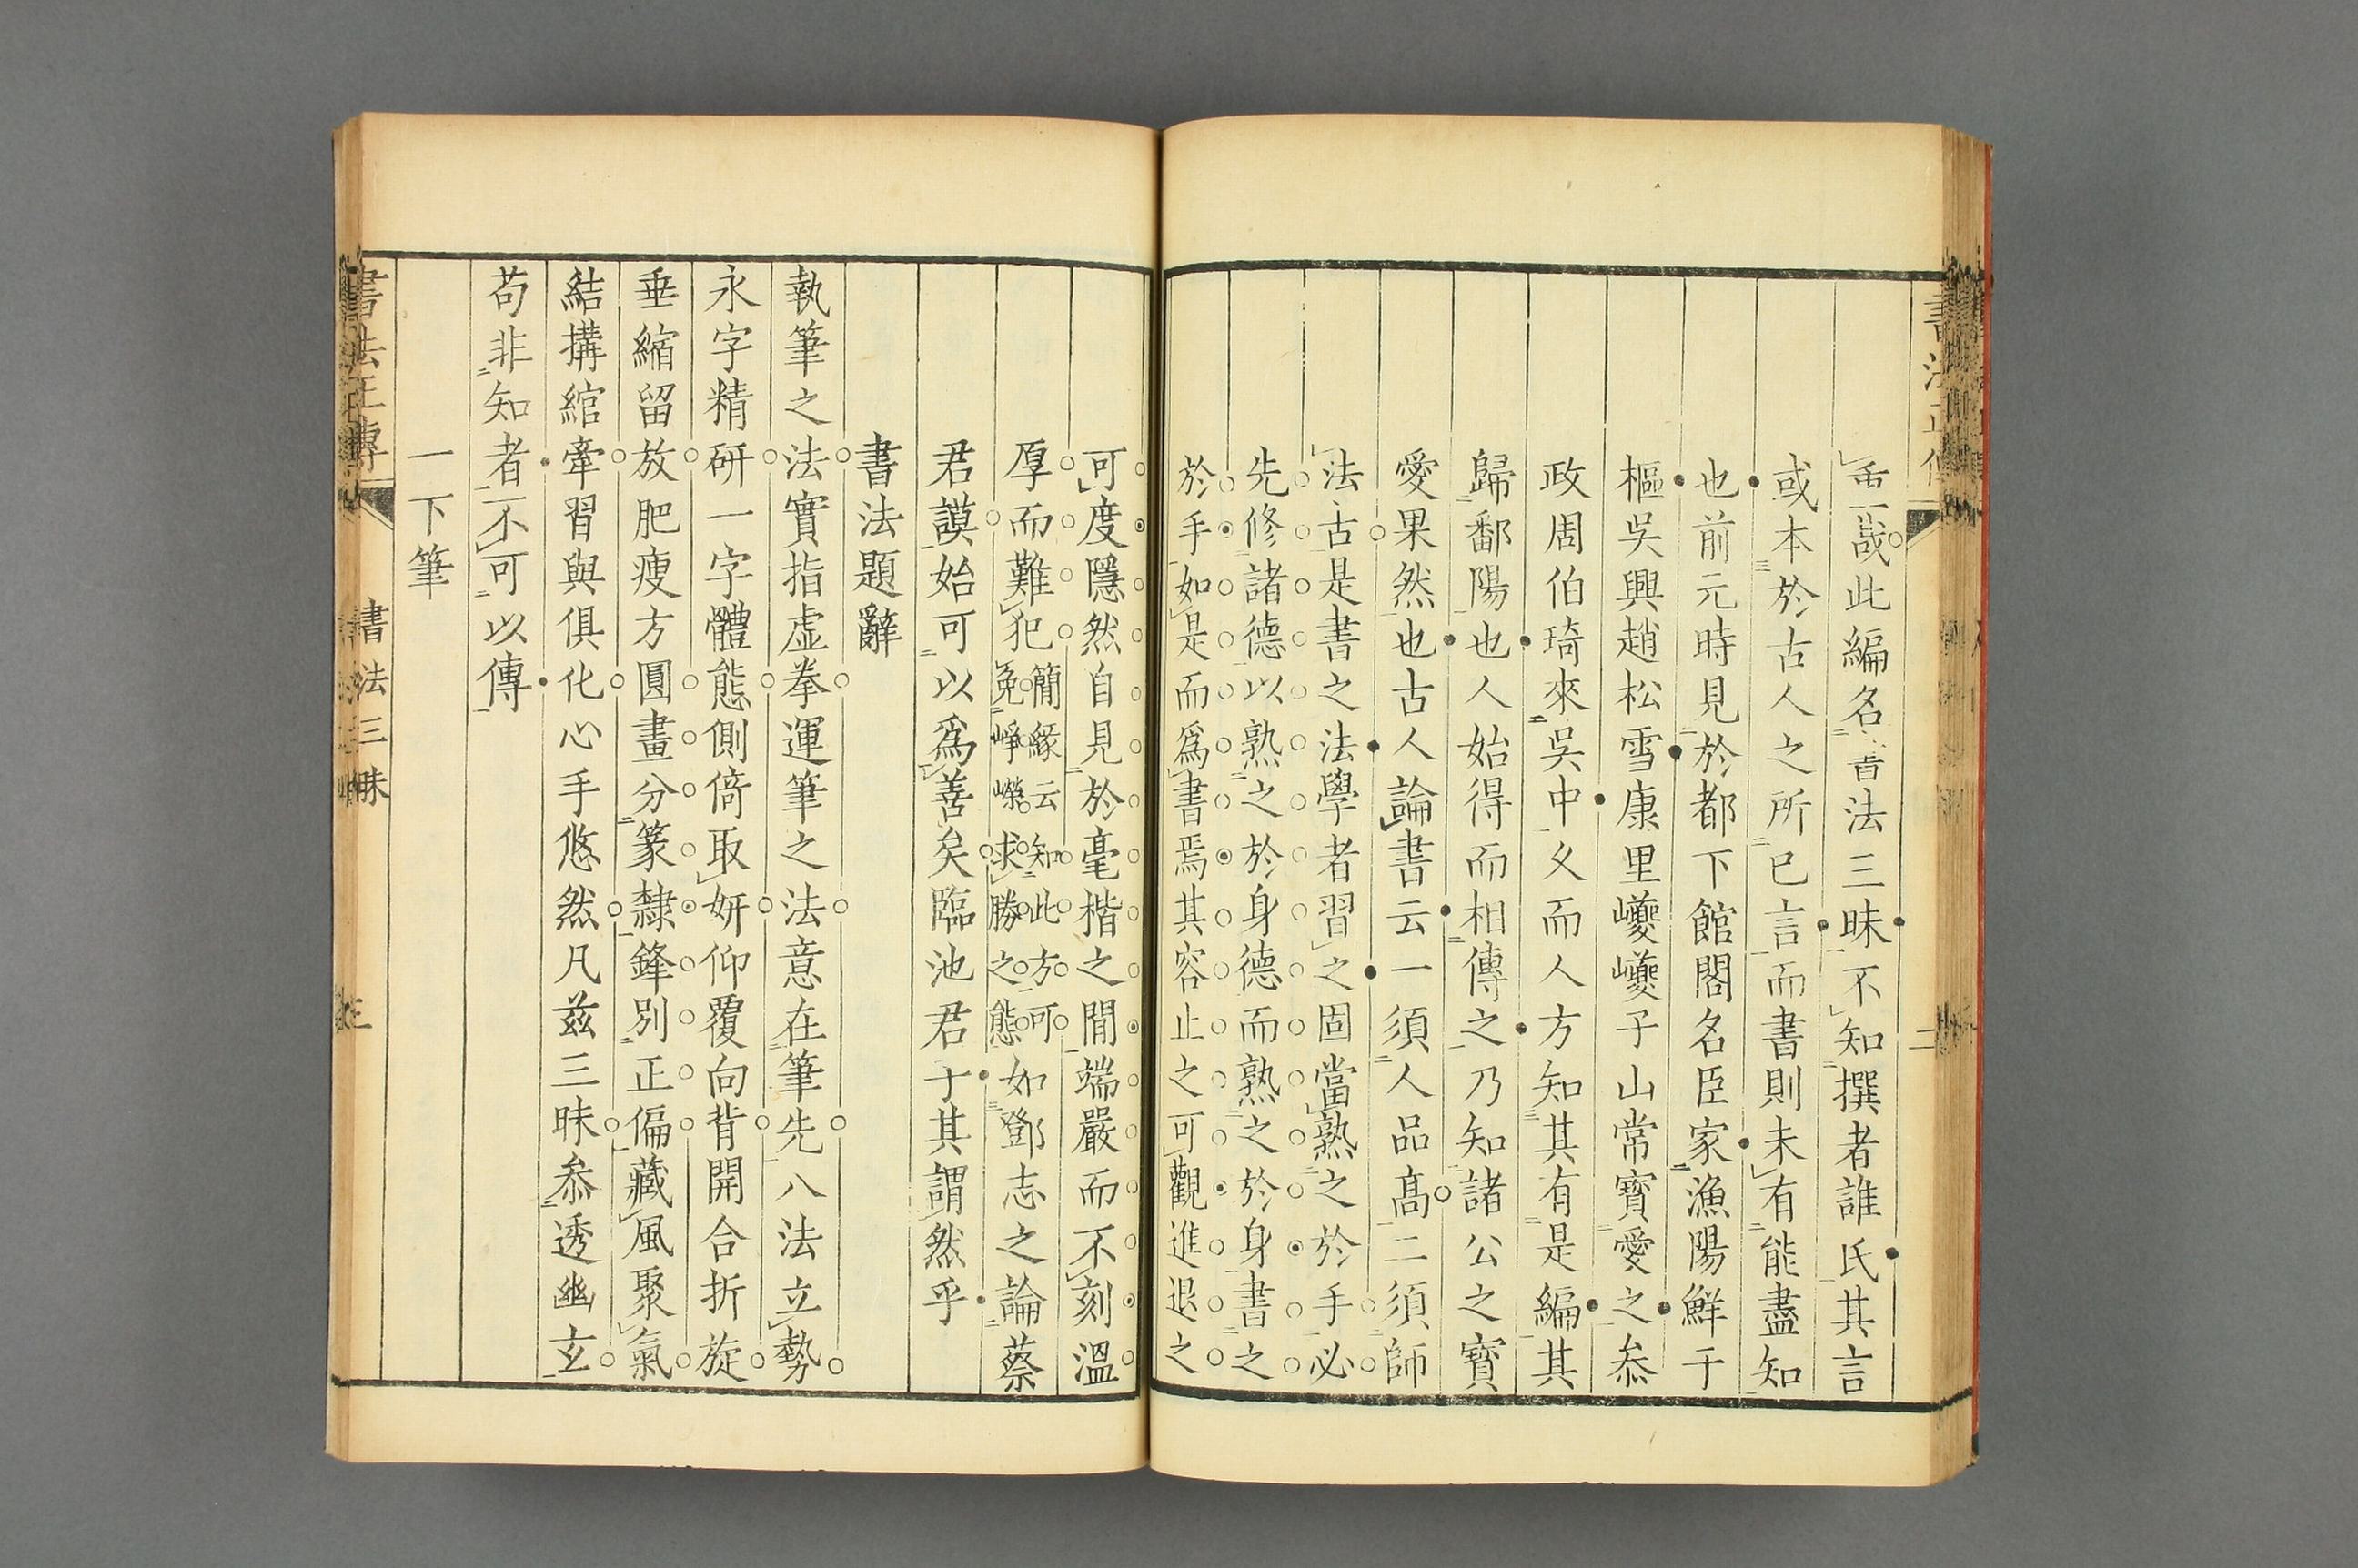 書法正傳
二
哉此編名書法三昧不知撰者誰氏其言
或本於古人之所已言而書則未有能盡知
也前元時見於都下館閣名臣家漁陽鮮于
樞吳興趙松雪康里巙巙子山常寶愛之叅
政周伯琦來吳中久而人方知其有是編其
歸鄱陽也人始得而相傳之乃知諸公之寶
愛果然也古人論書云一須人品髙二須師
法古是書之法學者習之固當熟之於手必
先修諸德以熟之於身德而熟之於身書之
於手如是而爲書焉其容止之可觀進退之
可度隱然自見於毫楷之間端嚴而不刻溫
厚而難犯簡緣云知此方可免崢嶸求勝之態如鄧志之論蔡
君謨始可以爲善矣臨池君于其謂然乎
書法題辭
執筆之法實指虛拳運筆之法意在筆先八法立勢
永字精研一字體態側倚取妍仰覆向背開合折旋
垂縮留放肥瘦方圓畫分篆隸鋒別正偏藏風聚氣
結搆綰牽習與俱化心手悠然凡兹三昧叅透幽玄
苟非知者不可以傳
一下筆
書法正傳
書法三昧
三